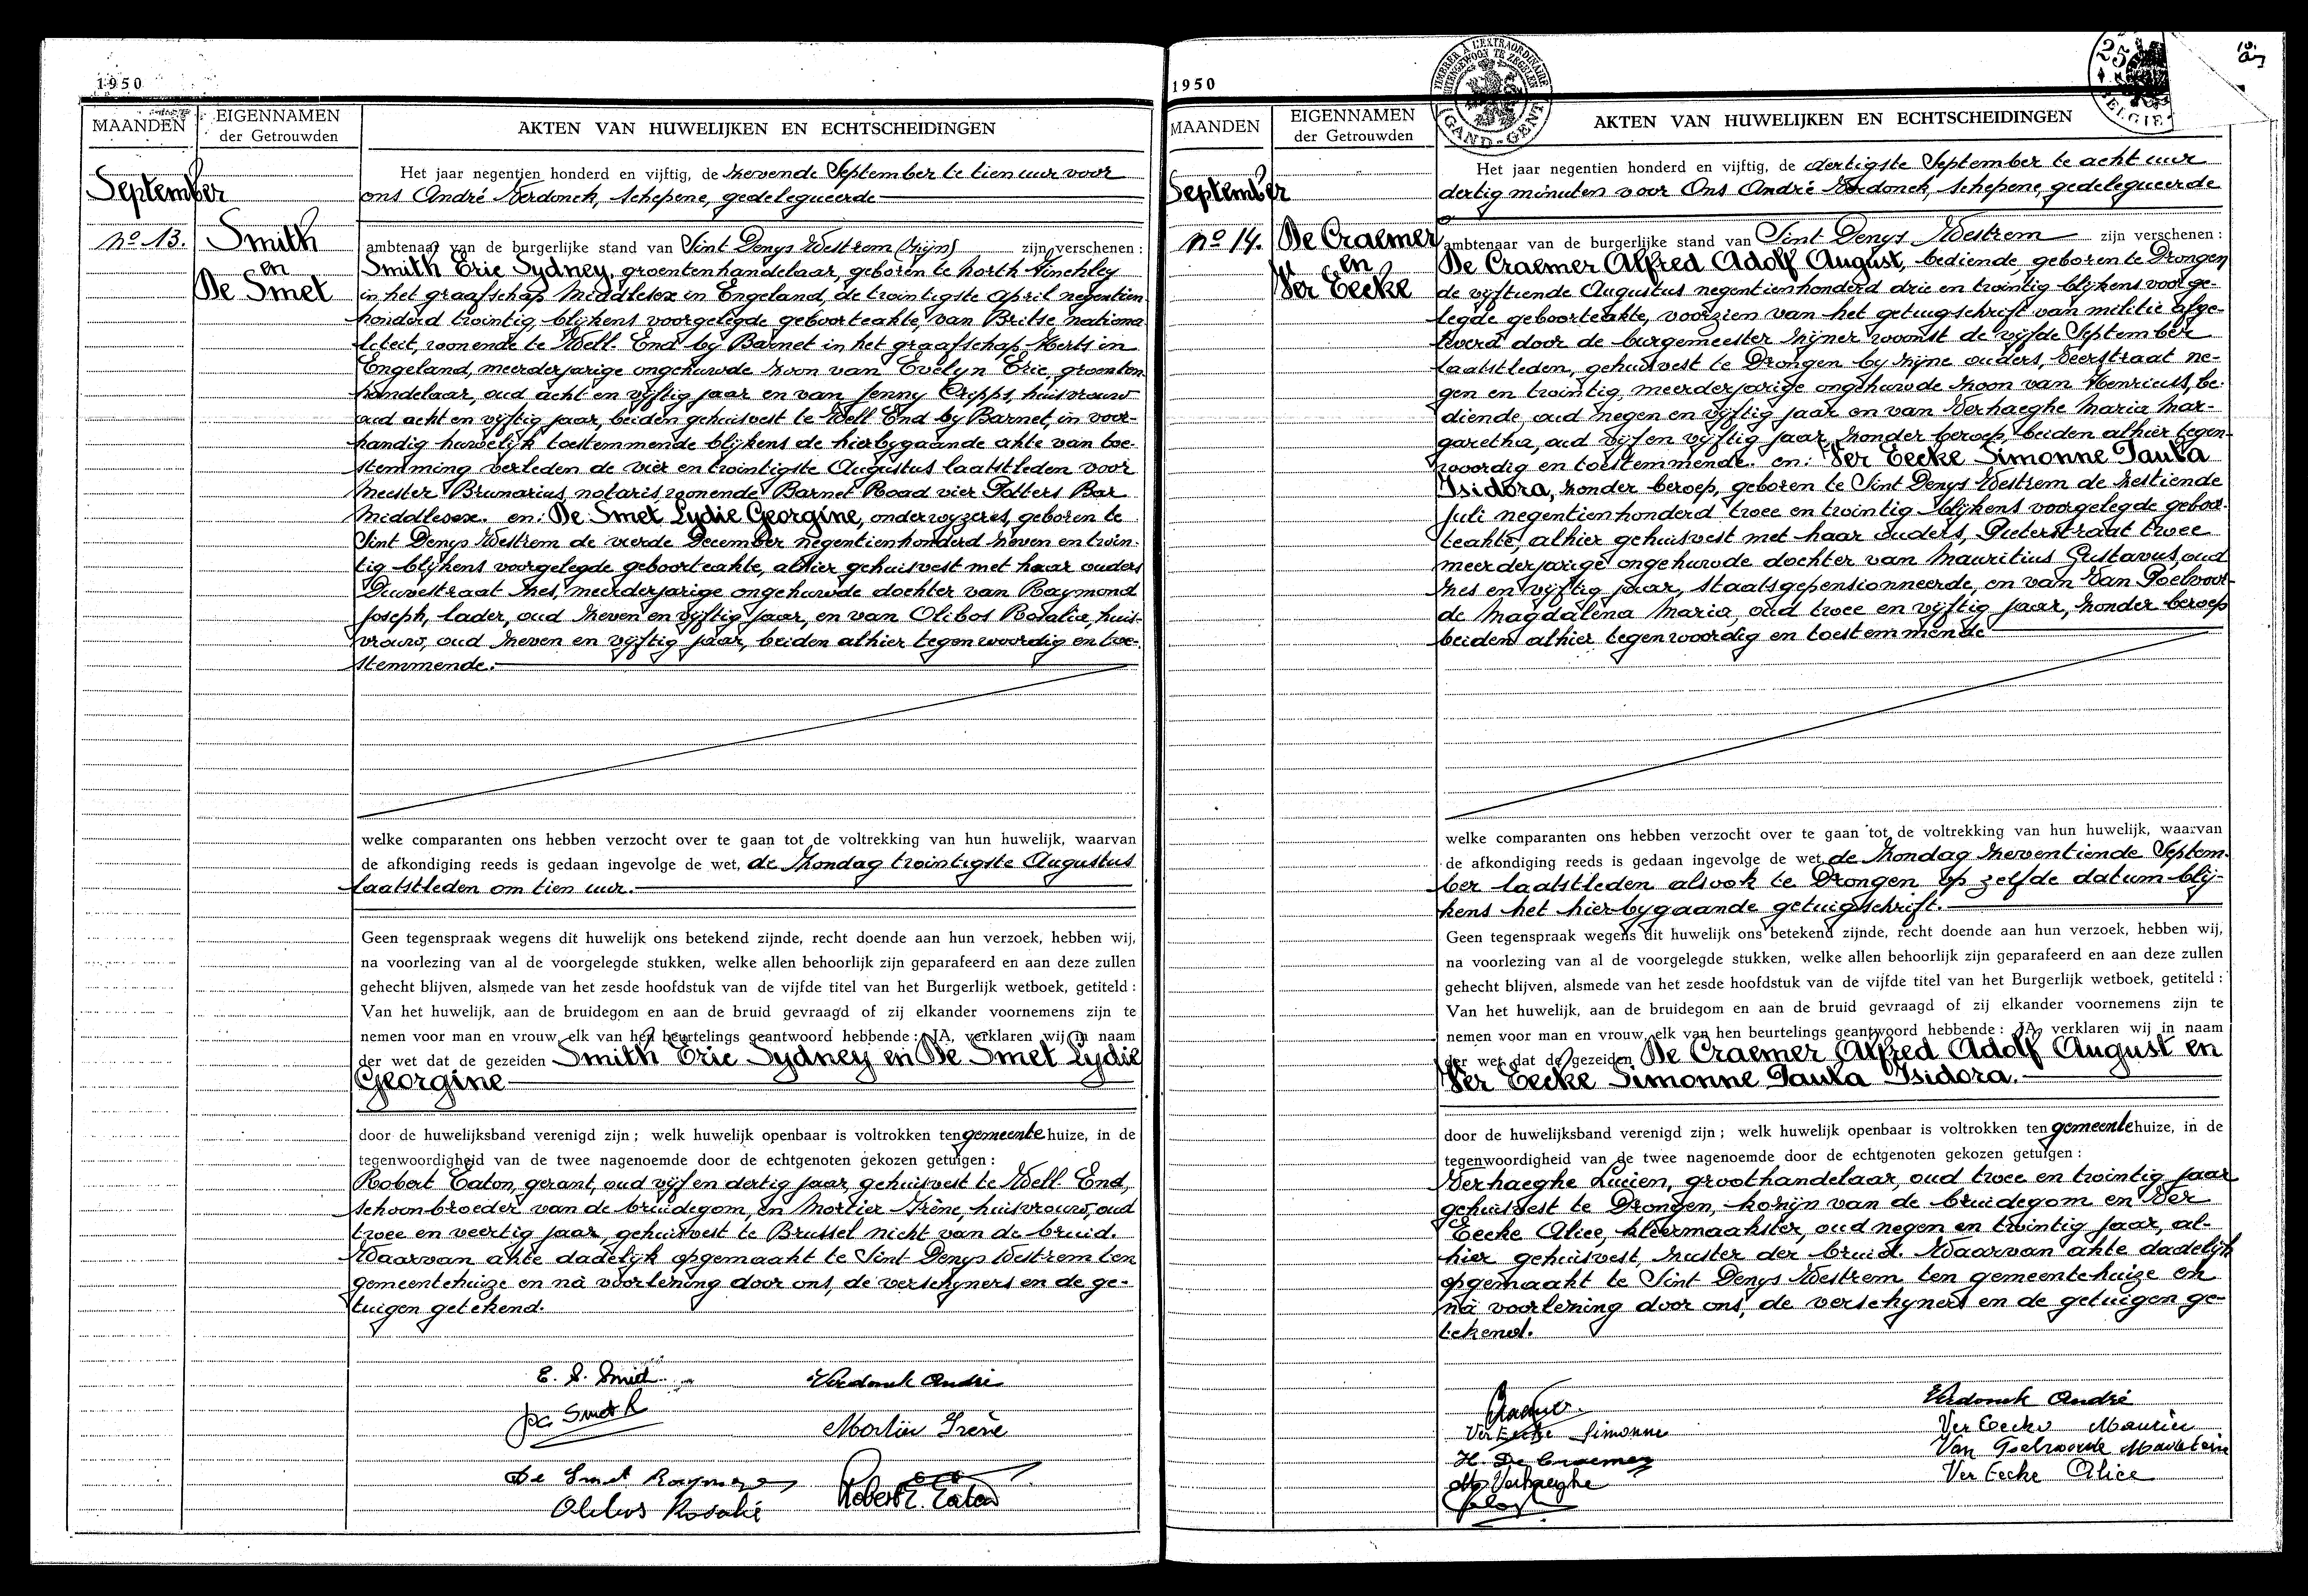 1950
MAANDEN
EIGENNAMEN
der Getrouwden
AKTEN VAN HUWELIJKEN EN ECHTSCHEIDINGEN
September
Nº 13.
Smith
en
De Smet
Het jaar negentien honderd en vijftig, de zevende September te tien uur voor
ons André Verdonck, schepene, gedelegueerde
ambtenaar van de burgerlijke stand van Sint Denys Westrem (Zijn) zijn verschenen :
Smith Eric Sydney, groentenhandelaar, geboren te North Finchley
in het graafschap Middlesex in Engeland, de twintigste April negentien
honderd twintig, blijkens voorgelegde geboorteakte, van Britse nationa
liteit, wonende te Well End by Barnet in het graafschap Herts in
Engeland, meerderjarige ongehuwde zoon van Evelyn Eric, groenten
handelaar, oud acht en vijftig jaar en van Jenny Cripps, huisvrouw
oud acht en vijftig jaar, beiden gehuisvest te Well End by Barnet, in voor-
handig huwelijk toestemmende blijkens de hierbygaande akte van toe-
stemming verleden de vier en twintigste Augustus laatstleden voor
Meester Brunarius, notaris, wonende Barnet Road vier Potters Bar
Middlesex. en: De Smet Lydie Georgine, onderwyzeres, geboren te
Sint Denys Westrem de vierde December negentienhonderd zeven en twin-
tig blijkens voorgelegde geboorteakte, alhier gehuisvest met haar ouders
Duivestraat zes, meerderjarige ongehuwde dochter van Raymond
Joseph, lader, oud zeven en vijftig jaar, en van Olibos Rosalie, huis-
vrouw, oud zeven en vijftig jaar, beiden alhier tegenwoordig en toe-
stemmende.
welke comparanten ons hebben verzocht over te gaan tot de voltrekking van hun huwelijk, waarvan
de afkondiging reeds is gedaan ingevolge de wet, de Zondag twintigste Augustus
laatstleden om tien uur.
Geen tegenspraak wegens dit huwelijk ons betekend zijnde, recht doende aan hun verzoek, hebben wij,
na voorlezing van al de voorgelegde stukken, welke allen behoorlijk zijn geparafeerd en aan deze zullen
gehecht blijven, alsmede van het zesde hoofdstuk van de vijfde titel van het Burgerlijk wetboek, getiteld :
Van het huwelijk, aan de bruidegom en aan de bruid gevraagd of zij elkander voornemens zijn te
nemen voor man en vrouw, elk van hen beurtelings geantwoord hebbende : JA, verklaren wij in naam
der wet dat de gezeiden Smith Eric Sydney en De Smet Lydie
Georgine
door de huwelijksband verenigd zijn ; welk huwelijk openbaar is voltrokken ten gemeentehuize, in de
tegenwoordigheid van de twee nagenoemde door de echtgenoten gekozen getuigen :
Robert Eaton, gerant, oud vijf en dertig jaar, gehuisvest te Well End,
schoonbroeder van de bruidegom, en Mortier Irène, huisvrouw, oud
twee en veertig jaar, gehuisvest te Brussel nicht van de bruid.
Waarvan akte dadelijk opgemaakt te Sint Denys Westrem ten
gemeentehuize en nà voorlezing door ons, de verschyners en de ge-
tuigen getekend.
E. S. Smith
Verdonck André
De Smet R
Mortier Irène
De Smet Raymond
Robert E. Eaton
Olibos Rosalie
1950
IMPRIMER A L'EXTRAORDINAIRE
BUITENGEWOON TE ZEGELEN
GAND-GENT
25
BELGIE
MAANDEN
EIGENNAMEN
der Getrouwden
AKTEN VAN HUWELIJKEN EN ECHTSCHEIDINGEN
September
Nº 14.
De Craemer
en
Ver Eecke
Het jaar negentien honderd en vijftig, de dertigste September te acht uur
dertig minuten voor Ons André Verdonck, schepene, gedelegueerde
ambtenaar van de burgerlijke stand van Sint Denys Westrem zijn verschenen :
De Craemer Alfred Adolf August, bediende, geboren te Drongen
de vijftiende Augustus negentienhonderd drie en twintig blijkens voorge-
legde geboorteakte, voorzien van het getuigschrift van militie afge-
leverd door de burgemeester zijner woonst de vijfde September
laatstleden, gehuisvest te Drongen by zijne ouders, Veerstraat ne-
gen en twintig, meerderjarige ongehuwde zoon van Henricus, be-
diende, oud negen en vijftig jaar en van Verhaeghe Maria Mar-
garetha, oud vijf en vijftig jaar, zonder beroep, beiden alhier tegen-
woordig en toestemmende. en: Ver Eecke Simonne Paula
Isidora, zonder beroep, geboren te Sint Denys Westrem de zestiende
Juli negentienhonderd twee en twintig blijkens voorgelegde geboor-
teakte, alhier gehuisvest met haar ouders, Pieterstraat twee
meerderjarige ongehuwde dochter van Mauritius Gustavus, oud
zes en vijftig jaar, staatsgepensionneerde, en van Van Poelvoor-
de Magdalena Maria, oud twee en vijftig jaar, zonder beroep
beiden alhier tegenwoordig en toestemmende
welke comparanten ons hebben verzocht over te gaan tot de voltrekking van hun huwelijk, waarvan
de afkondiging reeds is gedaan ingevolge de wet, de Zondag zeventiende Septem-
ber laatstleden alsook te Drongen op zelfde datum blij-
kens het hierbygaande getuigschrift.
Geen tegenspraak wegens dit huwelijk ons betekend zijnde, recht doende aan hun verzoek, hebben wij,
na voorlezing van al de voorgelegde stukken, welke allen behoorlijk zijn geparafeerd en aan deze zullen
gehecht blijven, alsmede van het zesde hoofdstuk van de vijfde titel van het Burgerlijk wetboek, getiteld :
Van het huwelijk, aan de bruidegom en aan de bruid gevraagd of zij elkander voornemens zijn te
nemen voor man en vrouw, elk van hen beurtelings geantwoord hebbende : JA, verklaren wij in naam
der wet dat de gezeiden De Craemer Alfred Adolf August en
Ver Eecke Simonne Paula Isidora.
door de huwelijksband verenigd zijn ; welk huwelijk openbaar is voltrokken ten gemeentehuize, in de
tegenwoordigheid van de twee nagenoemde door de echtgenoten gekozen getuigen :
Verhaeghe Lucien, groothandelaar, oud twee en twintig jaar
gehuisvest te Drongen, kozijn van de bruidegom en Ver
Eecke Alice, kleermaakster, oud negen en twintig jaar, al-
hier gehuisvest, zuster der bruid. Waarvan akte dadelijk
opgemaakt te Sint Denys Westrem ten gemeentehuize en
nà voorlezing door ons, de verschyners en de getuigen ge-
tekend.
Verdonck André
Ver Eecke Simonne
Ver Eecke Maurice
H. De Craemer
Van Poelvoorde Madeleine
M Verhaeghe
Ver Eecke Alice